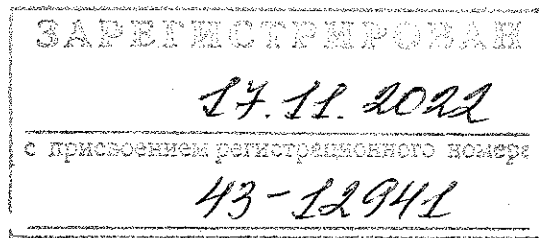 ЗАРЕГИСТРИРОВАН
17.11.2022
с присвоением регистрационного номера
43-12941